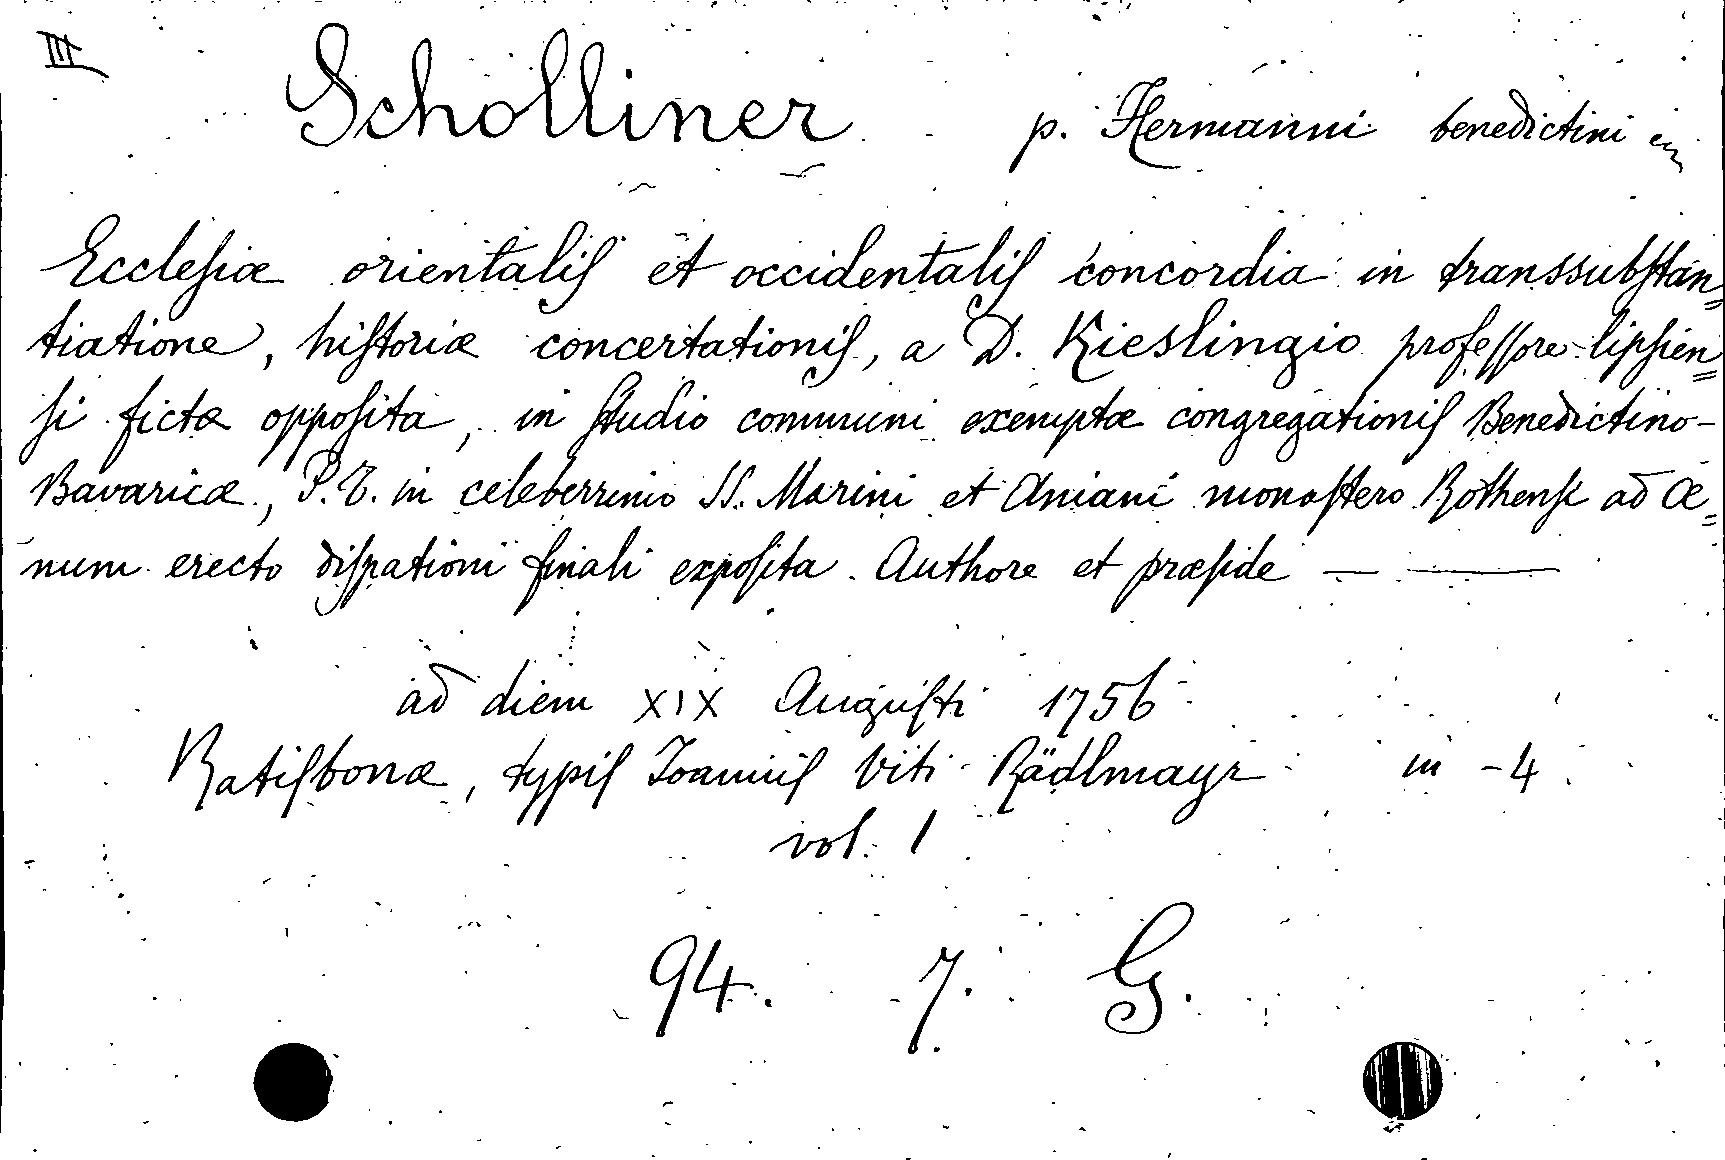 III
Scholliner p. Hermanni benedictini
Ecclesiæ orientalis et occidentalis concordia in transsubstan=
tiatione, historiæ concertationis, a D. Kieslingio professore lipsien=
si fictæ opposita, in studio communi exemptæ congregationis Benedictino-
Bavaricæ, P.T. in celeberrimo SS. Marini et Aniani monastero Rothensi ad Œ=
num erecto dispationi finali exposita. Authore et præside — —
ad diem XIX Augusti 1756
Ratisbonæ, typis Joannis Viti Rädlmayr in - 4
vol. 1
94. 7. G.